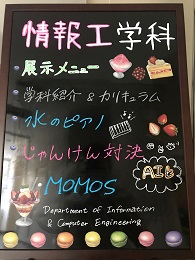 情報工学科
展示メニュー
学科紹介 & カリキュラム
水のピアノ
じゃんけん対決
AIと
MOMOS
Department of Information
& Computer Engineering